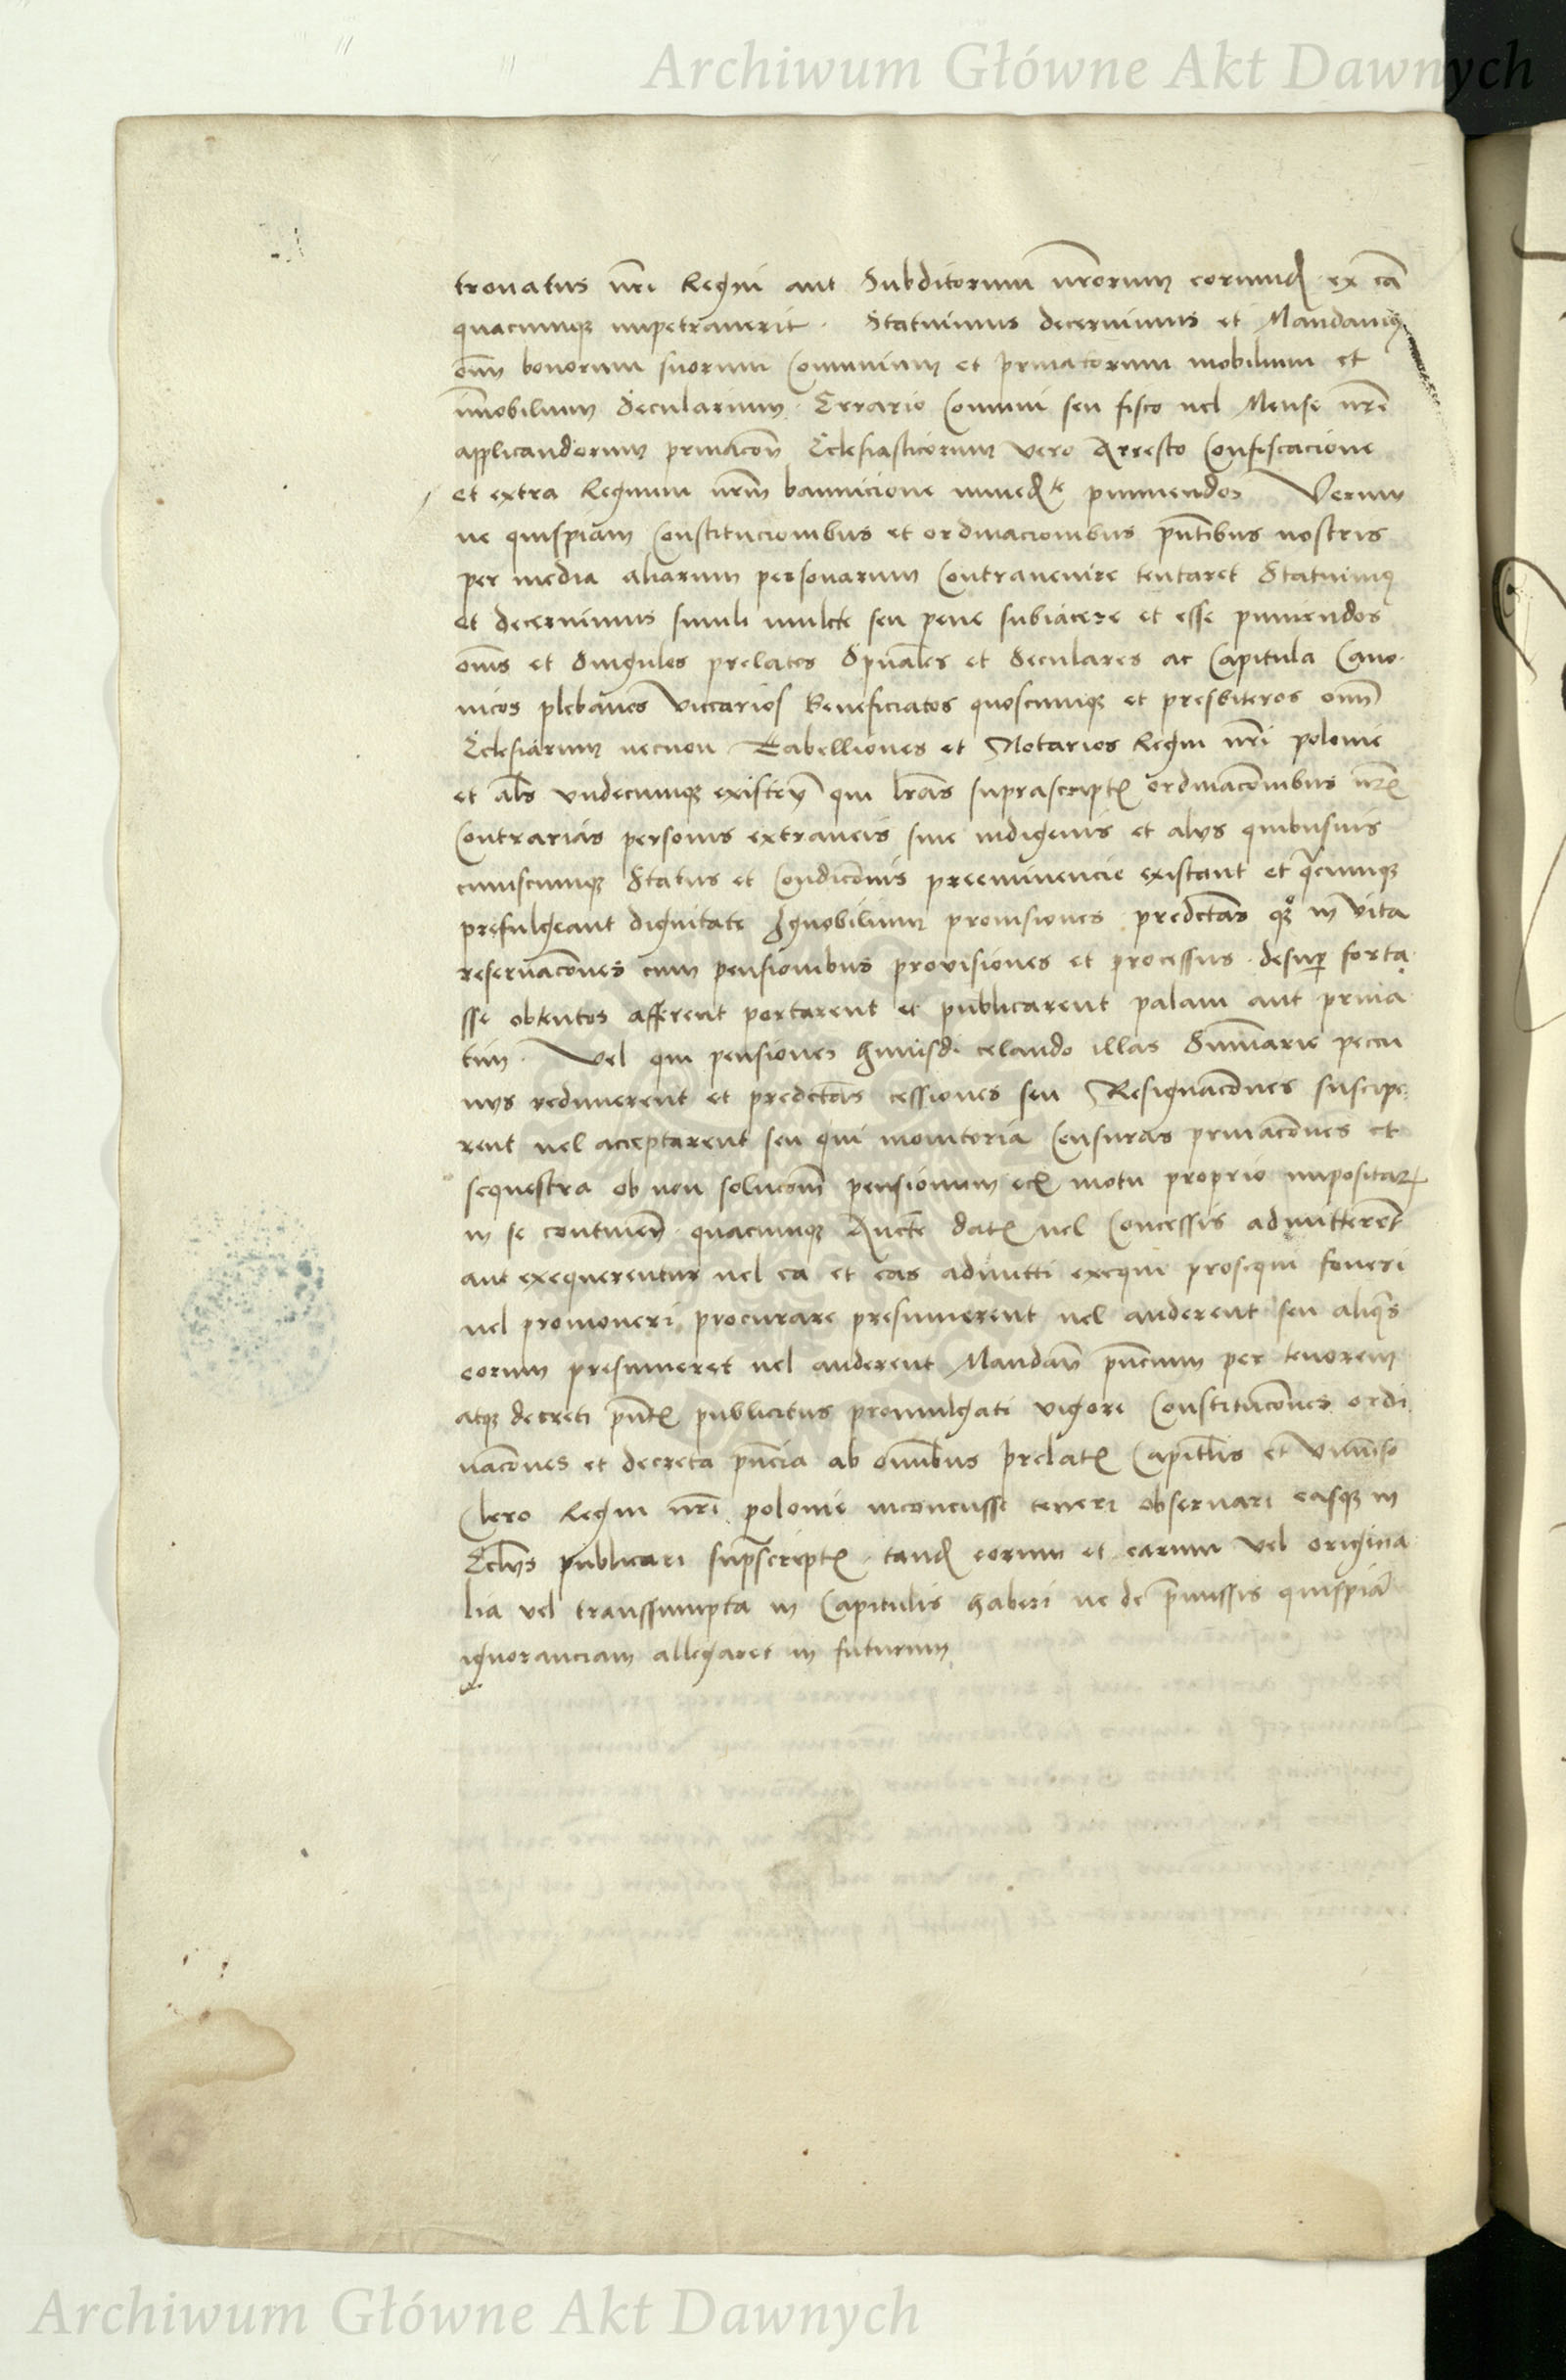 Archiwum Główne Akt Dawnych
tronatus nrĩ Regni aut Subditorum nrorum eorund ex cã
quacumq impetrauerit . Statuimus decernimus et Mandamq
omĩ bonorum suorum Comunium et priuatorum mobilium et
imobilium Secularium . Errario Comuni seu fisco uel Mense nrẽ
applicandorum priuacoñ Ecclesiasticorum vero Arresto Confiscacione
et extra Regnum nrm bannicione immedte puniendos Verum
ne quispiam Constitucionibus et ordinacionibus pntibus nostris
per media aliarum personarum Contrauenire tentaret Statuimq
et decernimus simili mulcte seu pene subiacere et esse puniendos
oms et Singulos prelatos Spuales et Seculares ac Capitula Cano
nicos plebanos Viccarios Beneficiatos quoscumq et presbiteros omĩ
Ecclesiarum necnon Tabelliones et Notarios Regni nrĩ polonie
et als vndecumq existen qui lras suprascript ordinaconibus nr
Contrarias personis extraneis siue indigenis et alys quibusuis
cuiuscumq Status et Condiconis preeminencie existant et qcumq
prefulgeant dignitate Ignobilium prouisiones predctas qz in Vita
reseruacones cum pensionibus prouisiones et processus desup forta
sse obtentos afferent portarent et publicarent palam aut priua
tim . Vel qui pensiones huiusdi celando illas Summarie peccu
nys redimerent et predctas cessiones seu Resignacones suscipe
rent uel acceptarent seu qui monitoria Censuras priuacones et
sequestra ob non solucom pensionum ec motu proprio impositar
in se continen quacumq Aucte dat uel Concessis admitterent
aut exequerentur uel ea et eas admitti exequi prosequi foueri
uel promoueri procurare presumerent uel auderent seu aliqs
eorum presumeret uel auderent Mandan pncium per tenorem
atq decreti pnt publicitus promulgati vigore Constitucones ordi
nacones et decreta pncia ab omnibus prelat Capitlis et Vniuerso
Clero Regni nrĩ polonie inconcusse teneri obseruari easq in
Ecclys publicari supscript tand eorum et earum vel origina
lia vel transsumpta in Capitulis haberi ne de pmissis quispiã
ignoranciam allegaret in futurum
Archiwum Główne Akt Dawnych